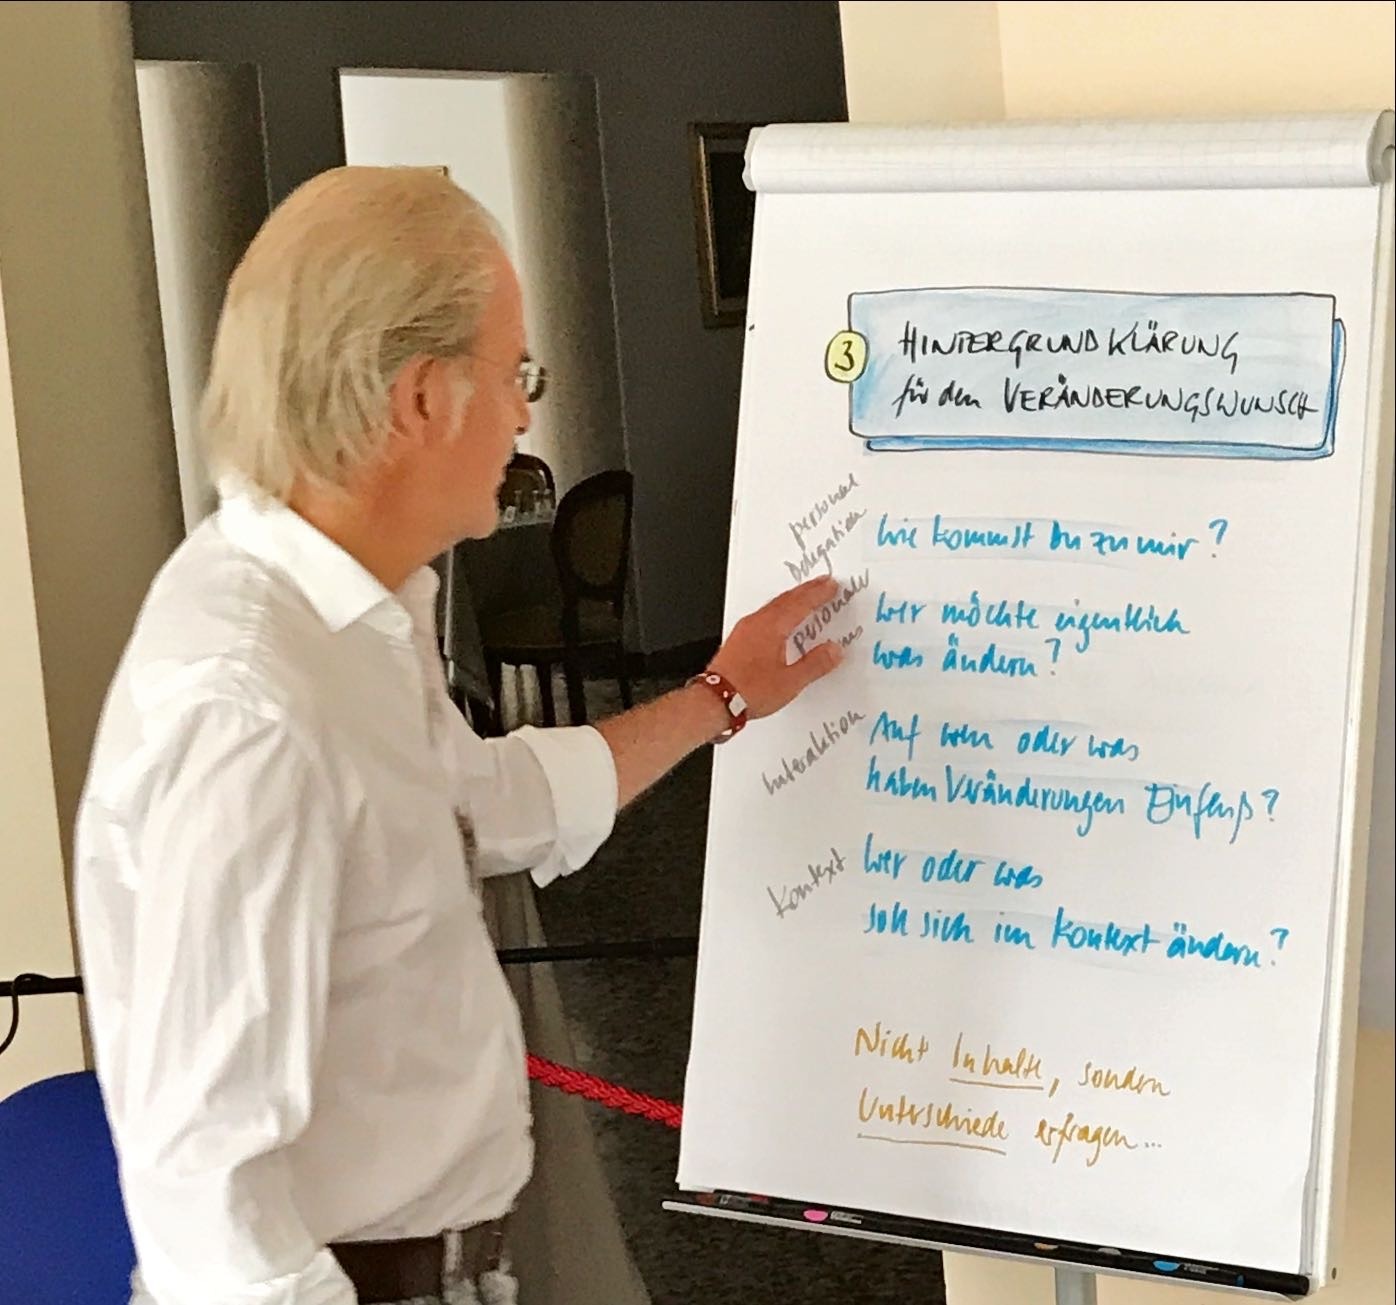 3
HINTERGRUNDKLÄRUNG
für den VERÄNDERUNGSWUNSCH
personal
Delegation
Wie kommst Du zu mir?
personale
Wer möchte eigentlich
was ändern?
Interaktion
Auf wen oder was
haben Veränderungen Einfluß?
Kontext
Wer oder was
soll sich im Kontext ändern?
Nicht Inhalte, sondern
Unterschiede erfragen...